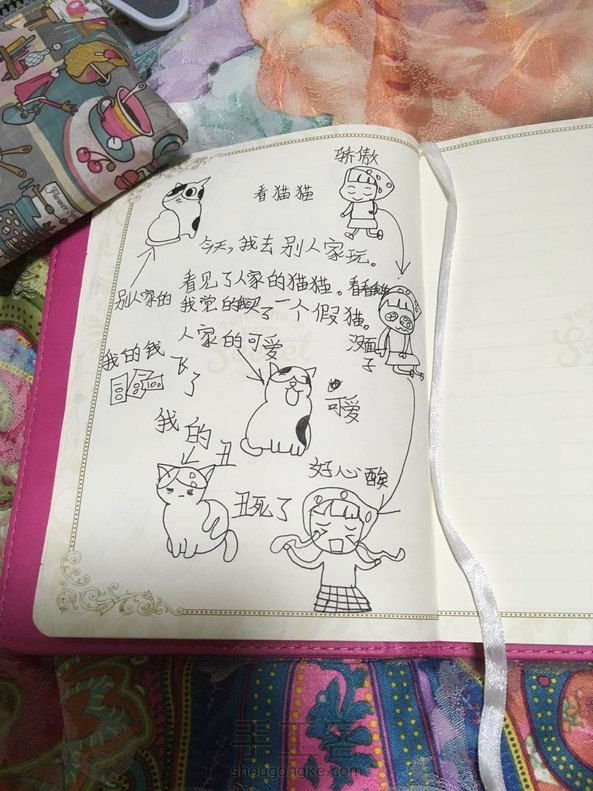 骄傲
看猫猫
今天，我去别人家玩。
别人家的
看见了人家的猫猫。看看
我觉的买了一个假猫。
人家的可爱
没面子
我的钱
飞了
可爱
我的丑
好心酸
丑死了
手工客
shougongke.com